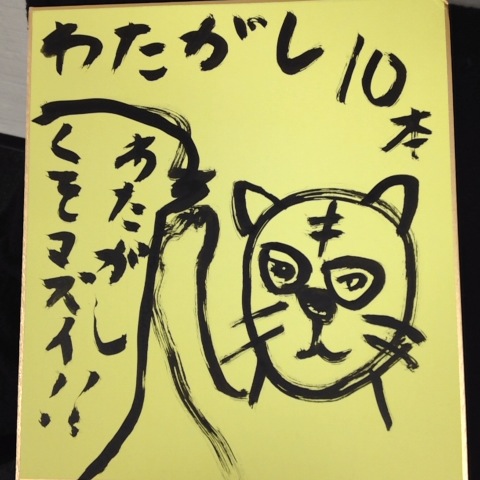 わたがし 10本
わたがし
くそマズイ!!